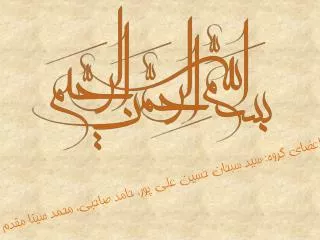 بسم الله الرحمن الرحیم
اعضای گروه: سید سبحان حسین علی پور، حامد صاحبی، محمد سینا مقدم